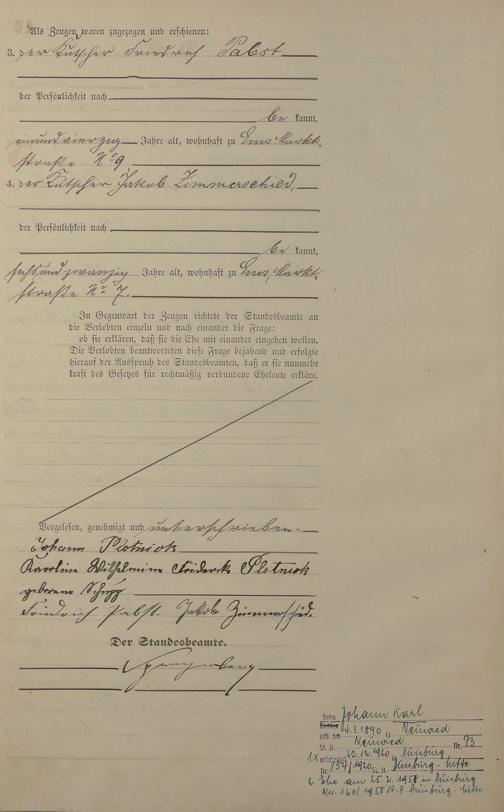 Als Zeugen waren zugezogen und erschienen:
3. der Kutscher Friedrich Pabst
der Persönlichkeit nach
be kannt,
vierundvierzig Jahre alt, wohnhaft zu Ems Markt-
straße No 9
4. der Kutscher Jakob Zimmerschied,
der Persönlichkeit nach
be kannt,
sechsundzwanzig Jahre alt, wohnhaft zu Ems, Markt-
straße No 7.
In Gegenwart der Zeugen richtete der Standesbeamte an
die Verlobten einzeln und nach einander die Frage:
ob sie erklären, daß sie die Ehe mit einander eingehen wollen.
Die Verlobten beantworteten diese Frage bejahend und erfolgte
hierauf der Ausspruch des Standesbeamten, daß er sie nunmehr
kraft des Gesetzes für rechtmäßig verbundene Eheleute erkläre.
Vorgelesen, genehmigt und unterschrieben.
Johann Plotniok
Karoline Wilhelmine Friderike Plotniok
geborene
Friedrich Pabst. Jakob Zimmerschied.
Der Standesbeamte.
Sohn Johann Karl
geb. am 4.3.1890 in Neuwied
St. A. Neuwied Nr. 73
1x 22.12.1920 Duisburg
Nr. /1920 St. A. Duisburg-
2. Ehe am 25.2.1958 in Duisburg
Nr. 160/1958 St. A. Duisburg-